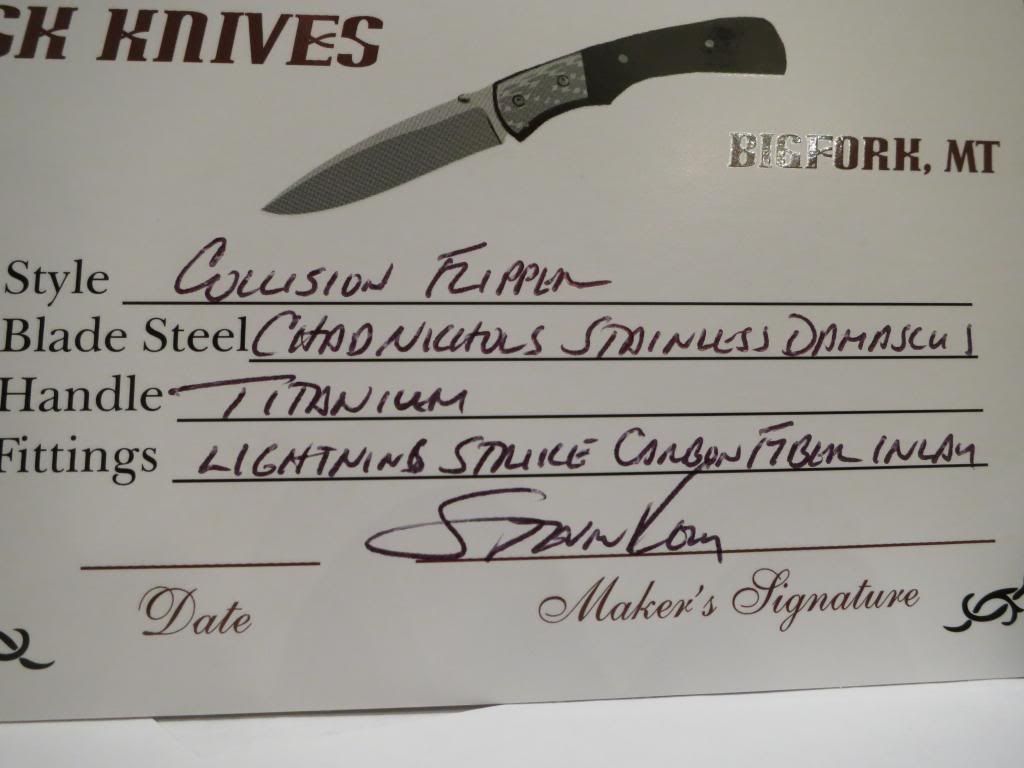 SK KNIVES
BIGFORK, MT
Style COLLISION FLIPPER
Blade Steel CHAD NICHOLS STAINLESS DAMASCUS
Handle TITANIUM
Fittings LIGHTNING STRIKE CARBON FIBER INLAY
Date
Maker's Signature